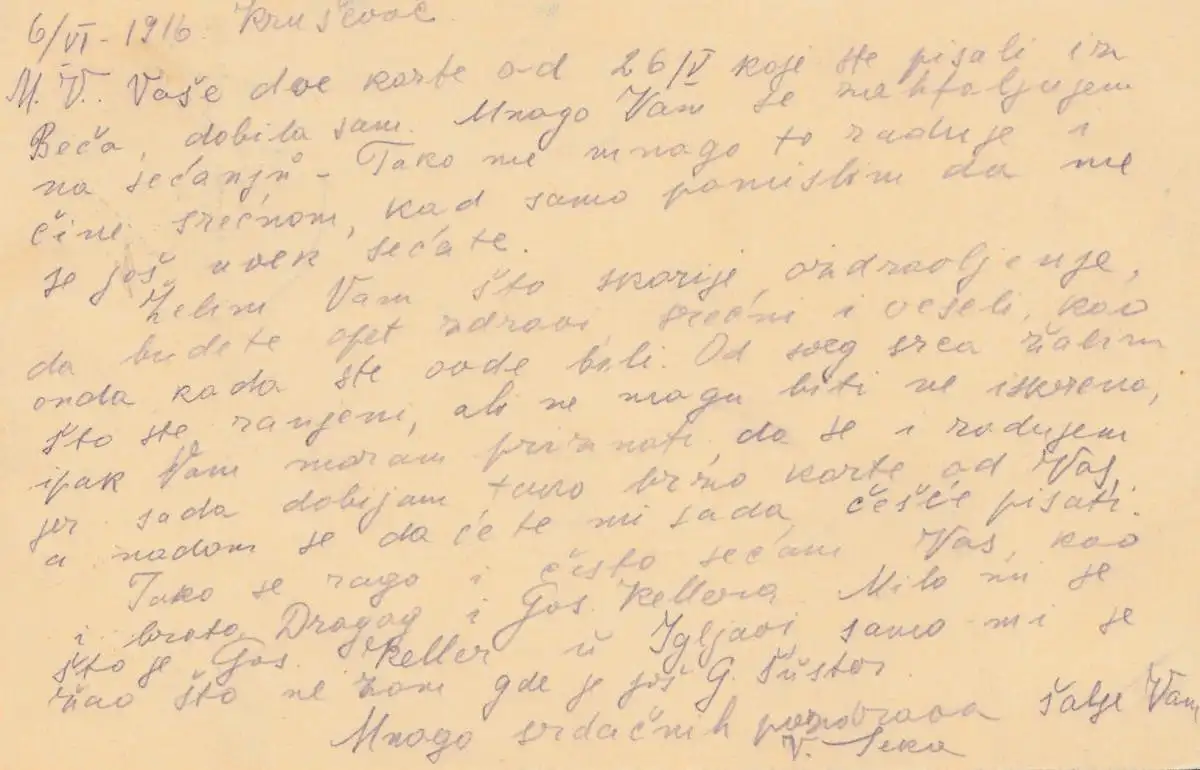 6/VI - 1916. Kruševac
M. V. Vaše dve karte od 26/V koje ste pisali iz
Beča, dobila sam. Mnogo Vam se zahfaljujem
na sećanju - Tako me mnogo to raduje i
čini srećnom, kad samo pomislim da me
se još uvek sećate.
Želim Vam što skorije ozdravljenje,
da budete opet zdravi, srećni i veseli, kao
onda kada ste ovde bili. Od sveg srca žalim
što ste ranjeni, ali ne mogu biti ne iskrena,
ipak Vam moram priznati, da se i radujem
jer sada dobijam tako brzo karte od Vas,
a nadam se da ćete mi sada češće pisati.
Tako se rago i često sećam Vas, kao
i brata Dragog i Gos. Kellera. Milo mi je
što je Gos. Keller u Igljavi samo mi je
žao što ne znam gde je još G. Šuster.
Mnogo srdačnih pozdrava šalje Vam
V. Seka